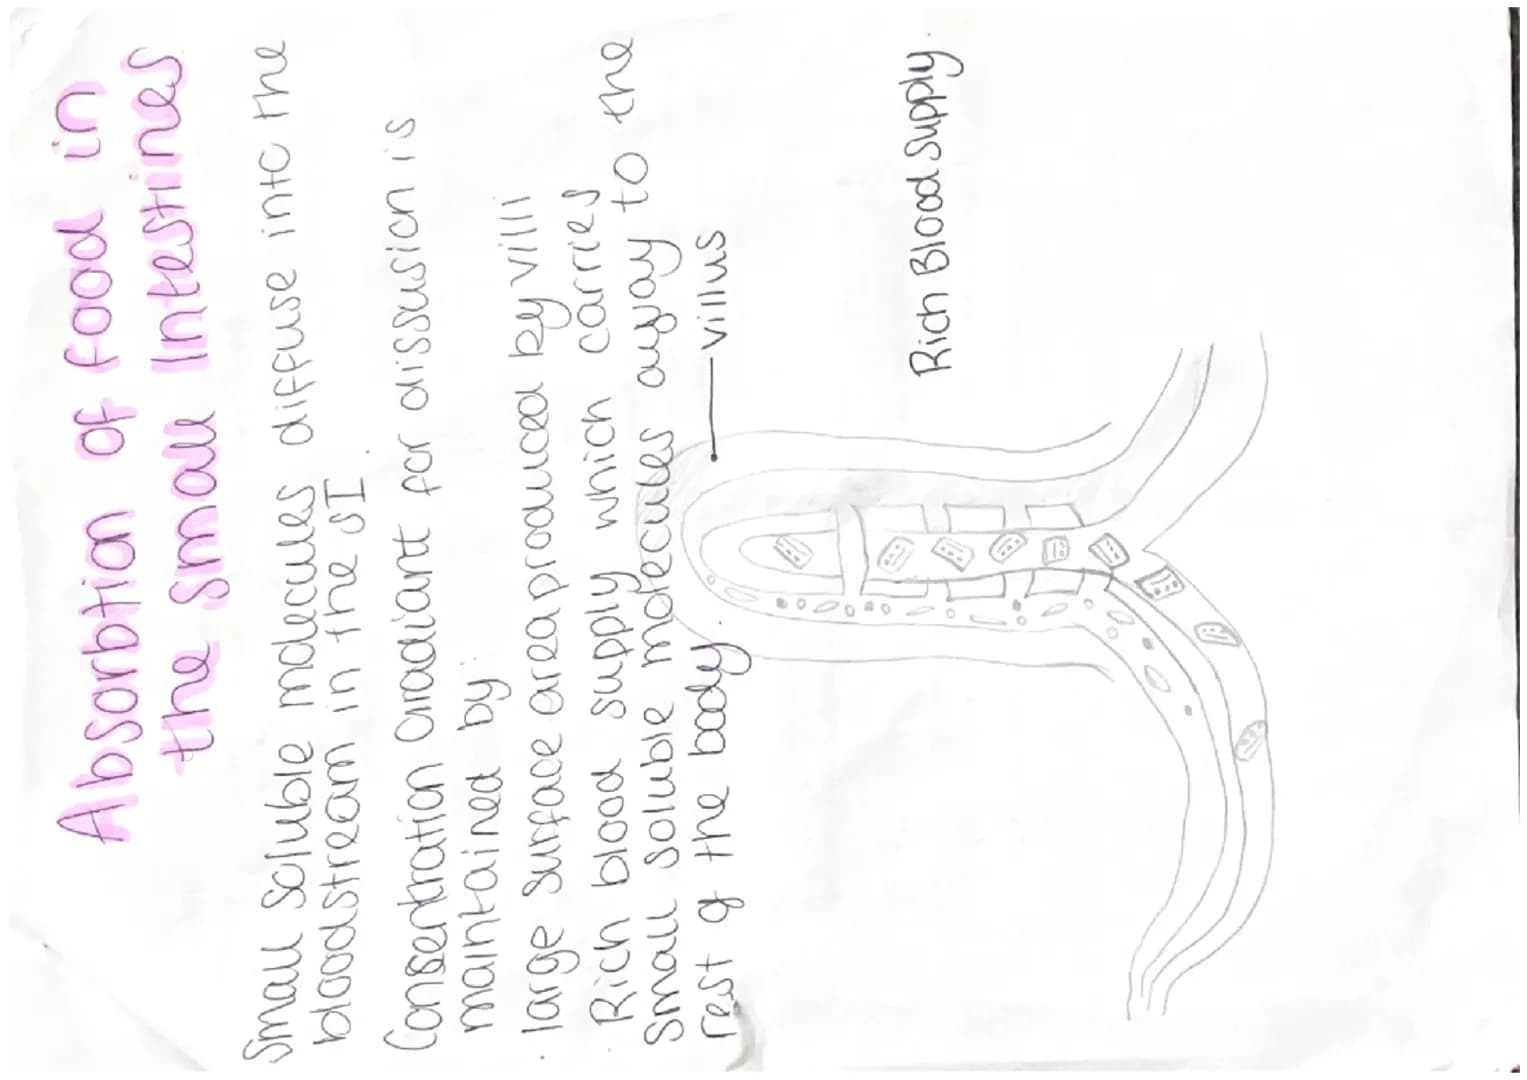 Absorbtion of food in
the small Intestines
Small soluble molecules diffuse into the
bloodstream in the SI.
Consentration gradiant for dissusion is
maintained by:
· large surface area produced by villi
· Rich blood supply which carries
small soluble molecules away to the
rest of the body.
villus
Rich Blood Supply.